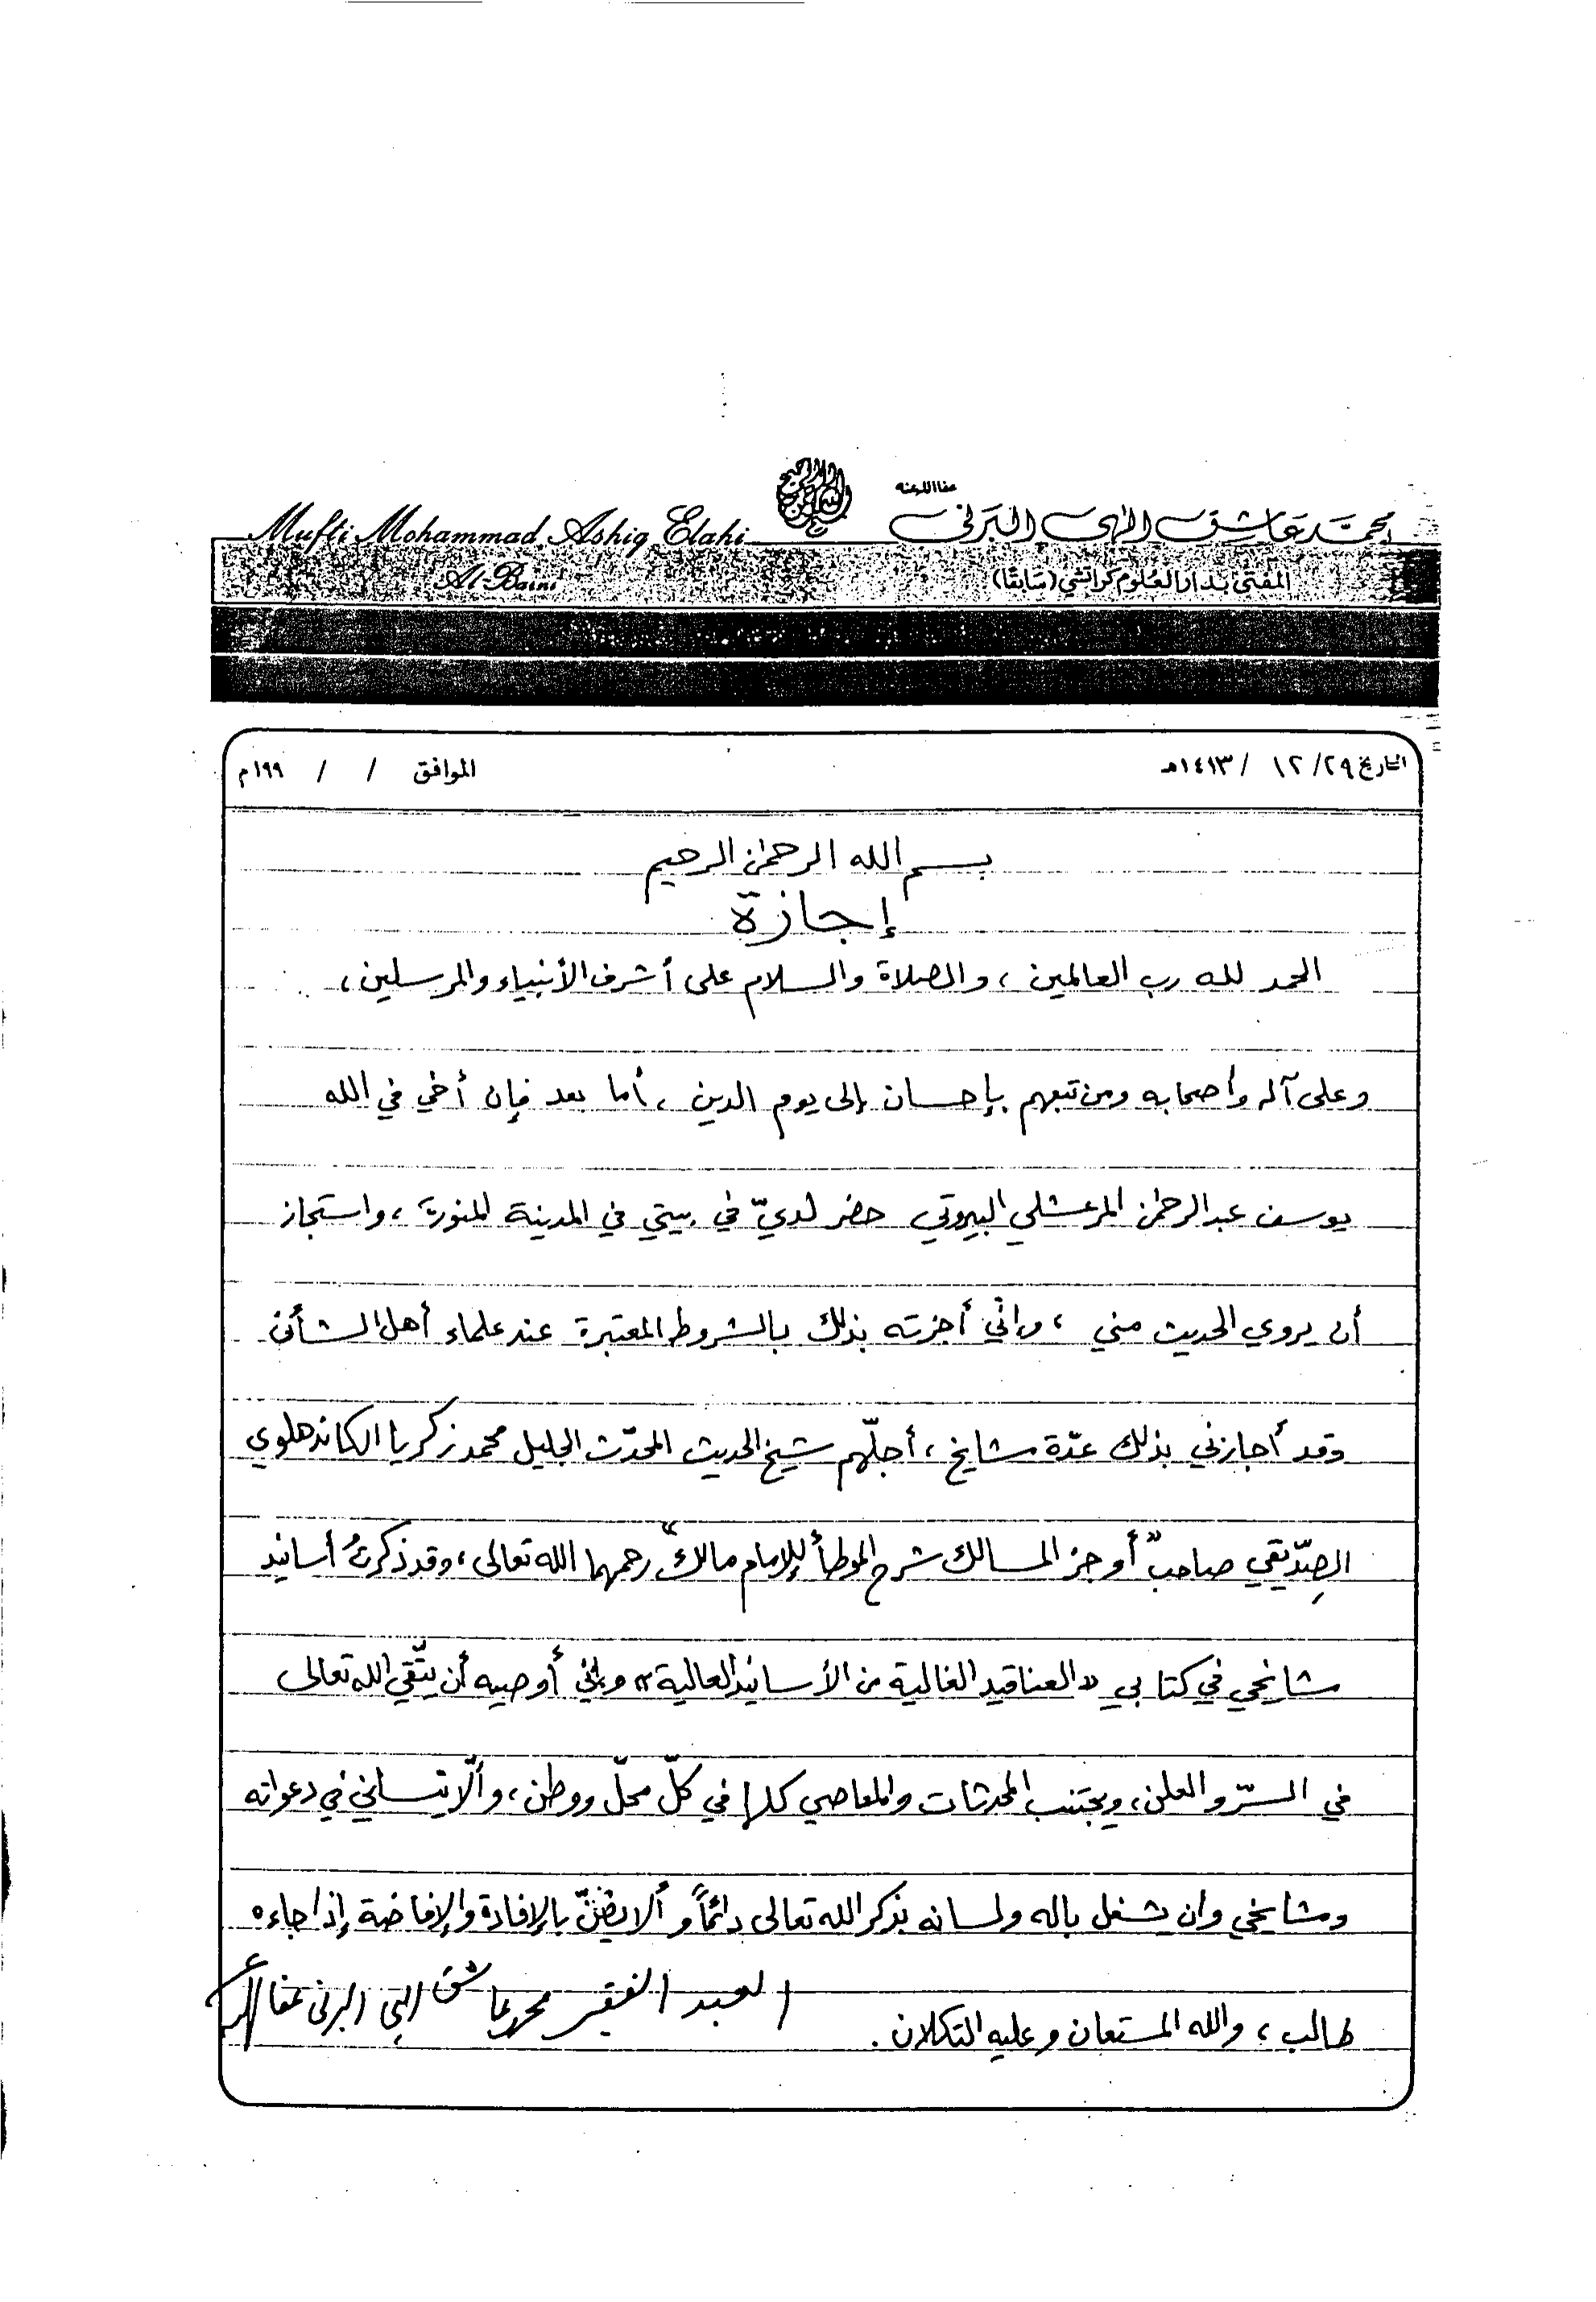 عفا الله عنه
محمد عاشق إلهي البرني
Mufti Mohammad Ashiq Elahi
Al-Barni
المفتي بدار العلوم كراتشي (سابقًا)
التاريخ ٢٩/ ١٢ / ١٤١٣هـ
الموافق / / ١٩٩م
بسم الله الرحمن الرحيم
إجازة
الحمد لله رب العالمين، والصلاة والسلام على أشرف الأنبياء والمرسلين،
وعلى آله وأصحابه ومن تبعهم بإحسان إلى يوم الدين، أما بعد فإن أخي في الله
يوسف عبد الرحمن المرعشلي البيروتي حضر لديّ في بيتي في المدينة المنورة، واستجاز
أن يروي الحديث مني، وإنّي أجزته بذلك بالشروط المعتبرة عند علماء أهل الشأن
وقد أجازني بذلك عدّة مشايخ، أجلّهم شيخ الحديث المحدّث الجليل محمد زكريا الكاندهلوي
الصِدّيقي صاحب "أوجز المسالك شرح الموطأ للإمام مالك" رحمهما الله تعالى، وقد ذكرتُ أسانيد
مشايخي في كتابي «العناقيد الغالية من الأسانيد العالية» وإني أوصيه أن يتّقي الله تعالى
في السرّ والعلن، ويجتنب المحدثات والمعاصي كلها في كلّ محلّ ووطن، وألّا ينساني في دعواته
ومشايخي وان يشغل باله ولسانه بذكر الله تعالى دائماً وألا يضنّ بالإفادة والإفاضة إذا جاءه
طالب، والله المستعان وعليه التكلان.
العبد الفقير محمد عاشق إلهي البرني عفا الله عنه